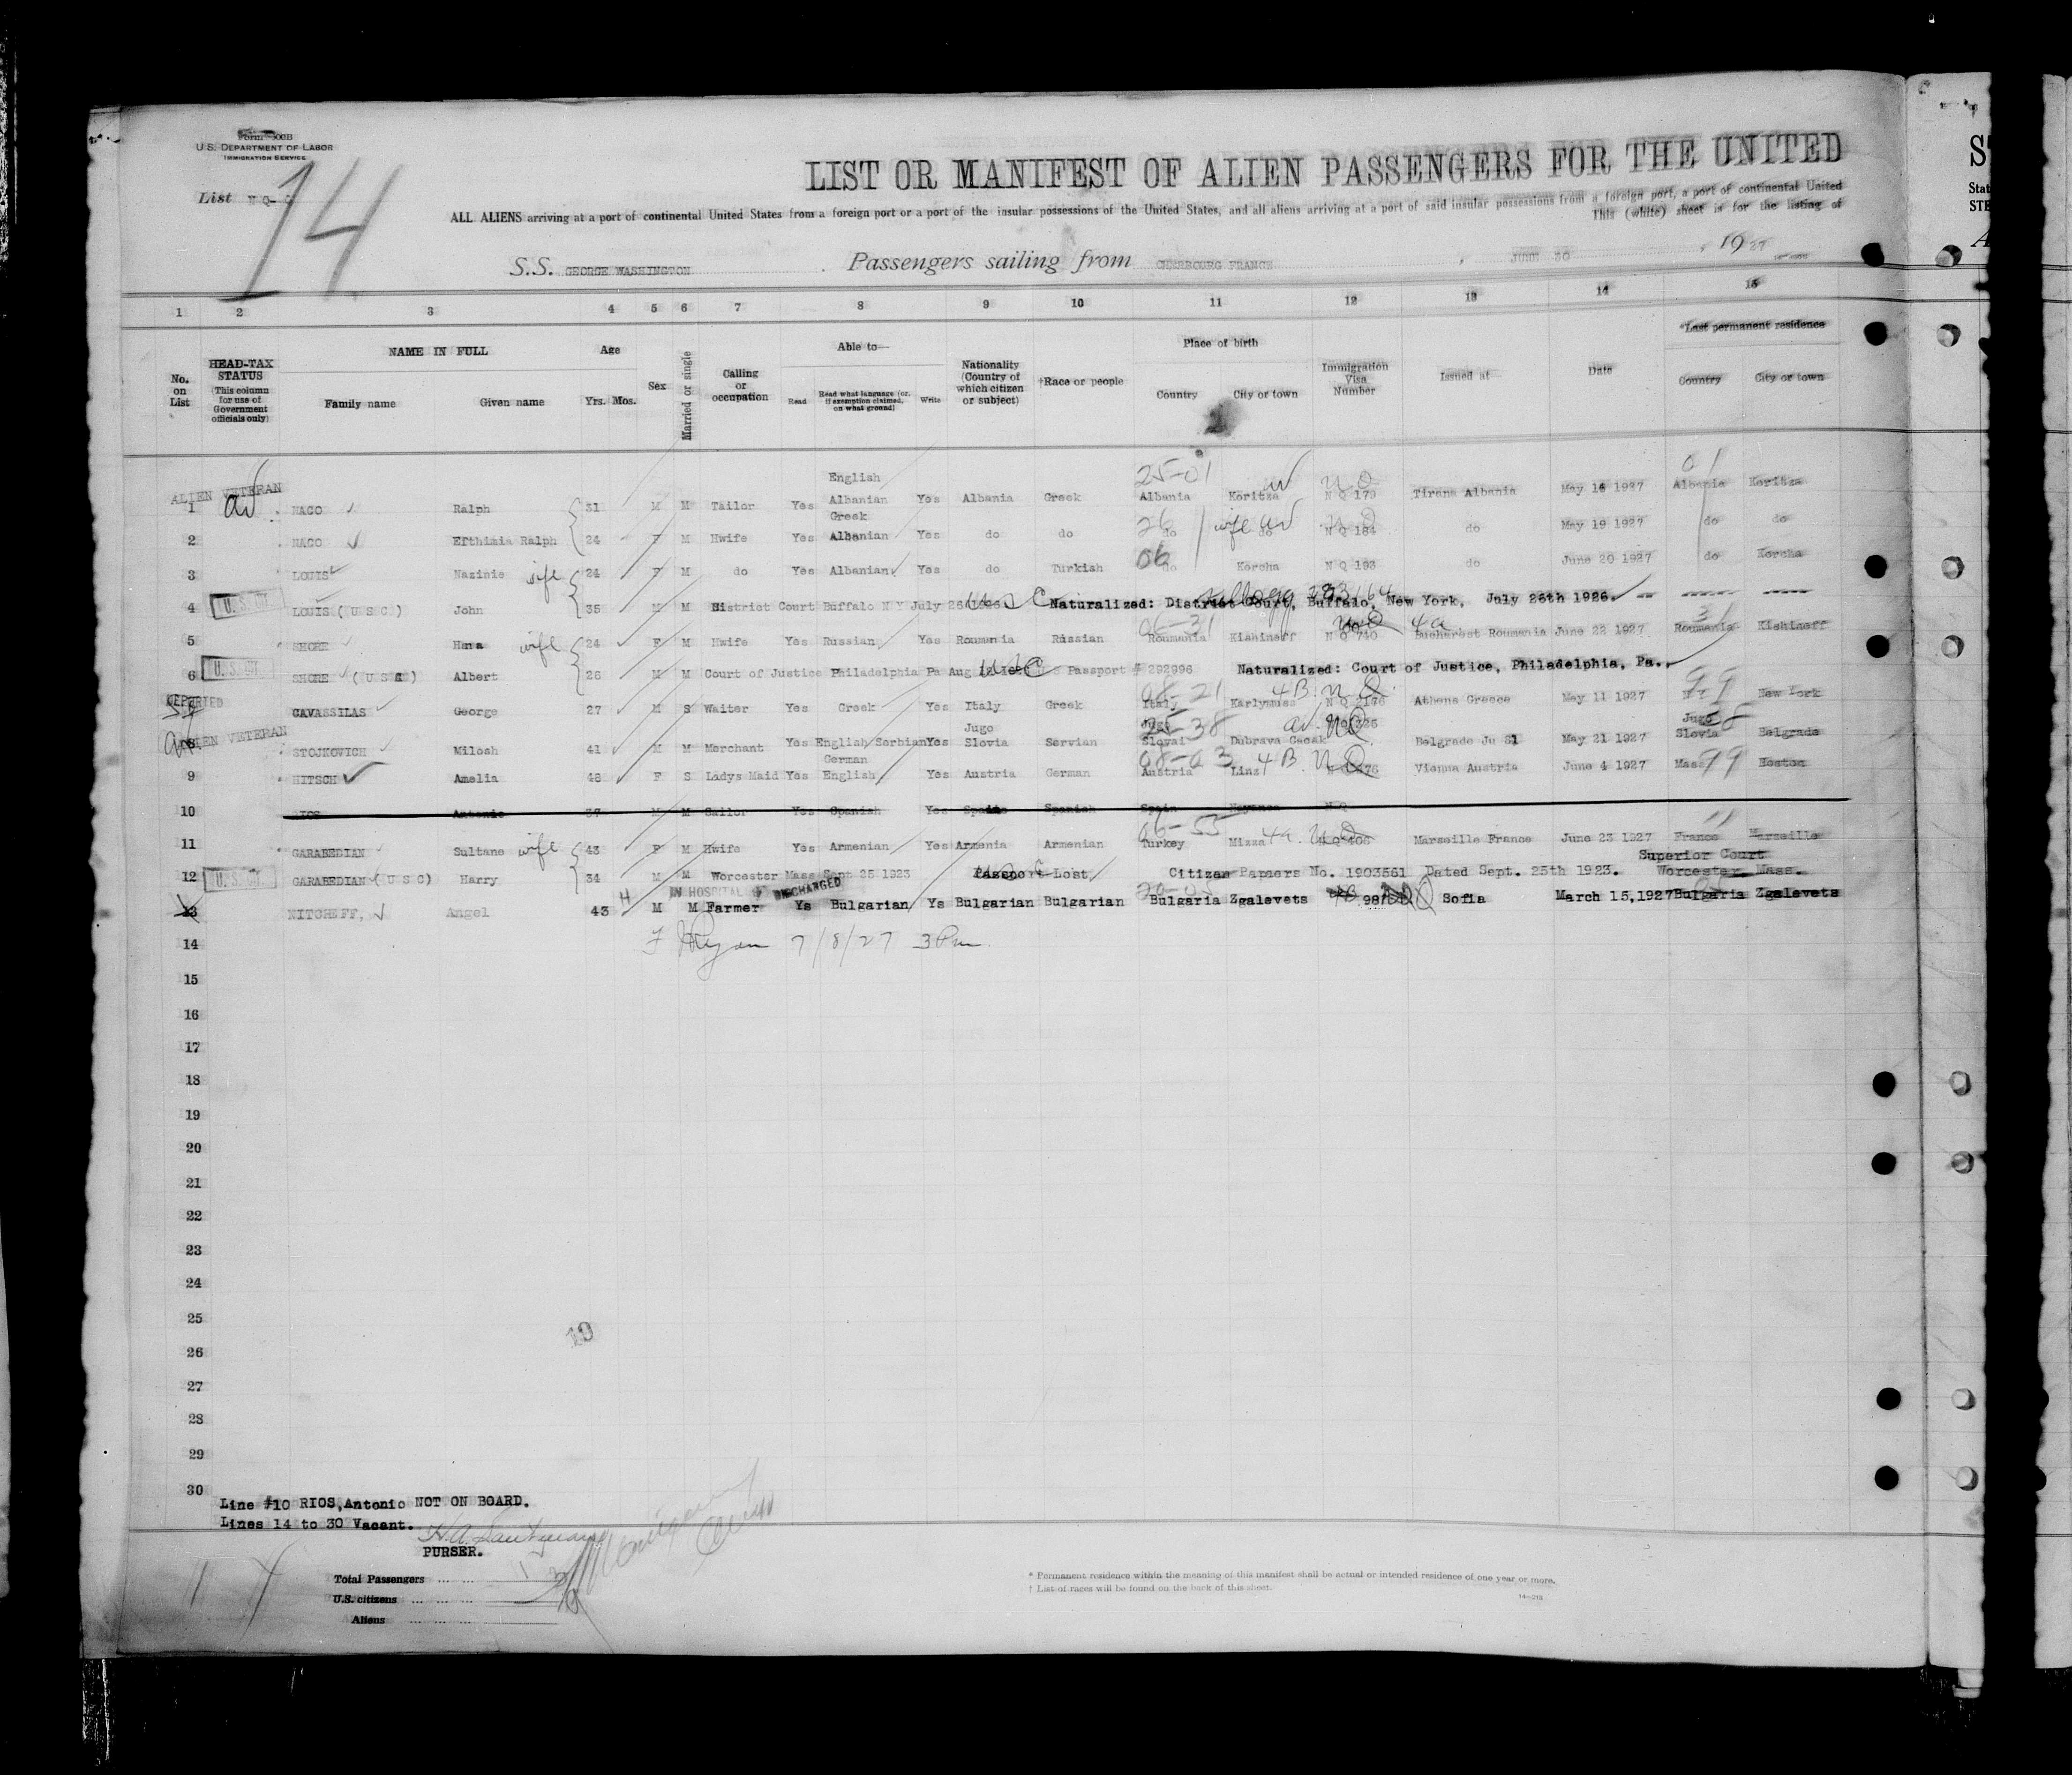 Form 500B
U.S. DEPARTMENT OF LABOR
IMMIGRATION SERVICE
14
List N Q-
LIST OR MANIFEST OF ALIEN PASSENGERS FOR THE UNITED
ALL ALIENS arriving at a port of continental United States from a foreign port or a port of the insular possessions of the United States, and all aliens arriving at a port of said insular possessions from a foreign port, a port of continental United
This (white) sheet is for the listing of
S.S. GEORGE WASHINGTON Passengers sailing from CHERBOURG FRANCE, JUNE 30, 1927
1 2 3 4 5 6 7 8 9 10 11 12 13 14 15
No. on List
HEAD-TAX STATUS (This column for use of Government officials only)
NAME IN FULL Family name Given name
Age Yrs. Mos.
Sex
Married or single
Calling or occupation
Able to— Read Read what language (or, if exemption claimed, on what ground) Write
Nationality (Country of which citizen or subject)
†Race or people
Place of birth Country City or town
Immigration Visa Number
Issued at
Date
*Last permanent residence Country City or town
English 25-01 av N Q 01
ALIEN VETERAN
1 av NACO Ralph 31 M M Tailor Yes Albanian Yes Albania Greek Albania Koritza N Q 179 Tirana Albania May 16 1927 Albania Koritza
Greek 26 wife av
2 NACO Efthimia Ralph 24 F M Hwife Yes Albanian Yes do do do do N Q 184 do May 19 1927 do do
3 LOUIS Nazinie wife 24 F M do Yes Albanian Yes do Turkish 06 do Korcha N Q 193 do June 20 1927 do Korcha
4 U.S. CIT. LOUIS (U S C) John 35 M M District Court Buffalo N Y July 26 1926 U S C Naturalized: District Court, Buffalo, New York, July 26th 1926.
06-31 4a 31
5 SHORE Hena wife 24 F M Hwife Yes Russian Yes Roumania Russian Roumania Kishineff N Q 740 Bucharest Roumania June 22 1927 Roumania Kishineff
6 U.S. CIT. SHORE (U S C) Albert 26 M M Court of Justice Philadelphia Pa Aug U S C Passport # 292996 Naturalized: Court of Justice, Philadelphia, Pa.
DEPORTED 08-21 4B N Q 99
7 CAVASSILAS George 27 M S Waiter Yes Greek Yes Italy Greek Italy Karlymiss N Q 2176 Athens Greece May 11 1927 N Y New York
ALIEN VETERAN Jugo Jugo 25-38 av N Q Jugo
8 STOJKOVICH Milosh 41 M M Merchant Yes English/Serbian Yes Slovia Servian Slovai Dubrava Cacak Belgrade Ju Sl May 21 1927 Slovia Belgrade
German 08-03 4B N Q
9 HITSCH Amelia 48 F S Ladys Maid Yes English Yes Austria German Austria Linz Vienna Austria June 4 1927 Mass 99 Boston
10 RIOS Antonio 37 M M Sailor Yes Spanish Yes Spain Spanish Spain N Q
06-55 4a 11
11 GARABEDIAN Sultane wife 43 F M Hwife Yes Armenian Yes Armenia Armenian Turkey Mizza N Q 406 Marseille France June 23 1927 France Marseille
Superior Court
12 U.S. CIT. GARABEDIAN (U S C) Harry 34 M M Worcester Mass Sept 25 1923 Passport Lost, Citizen Papaers No. 1903561 Dated Sept. 25th 1923. Worcester, Mass.
H IN HOSPITAL DISCHARGED
13 NITCHEFF, Angel 43 M M Farmer Ys Bulgarian Ys Bulgarian Bulgarian Bulgaria Zgalevets Sofia March 15,1927 Bulgaria Zgalevets
14 Ryan 7/8/27 3 Pm
15
16
17
18
19
20
21
22
23
24
25
19
26
27
28
29
30
Line #10 RIOS,Antonio NOT ON BOARD.
Lines 14 to 30 Vacant.
PURSER.
Total Passengers 13
U.S. citizens
Aliens
* Permanent residence within the meaning of this manifest shall be actual or intended residence of one year or more.
† List of races will be found on the back of this sheet.
14—213